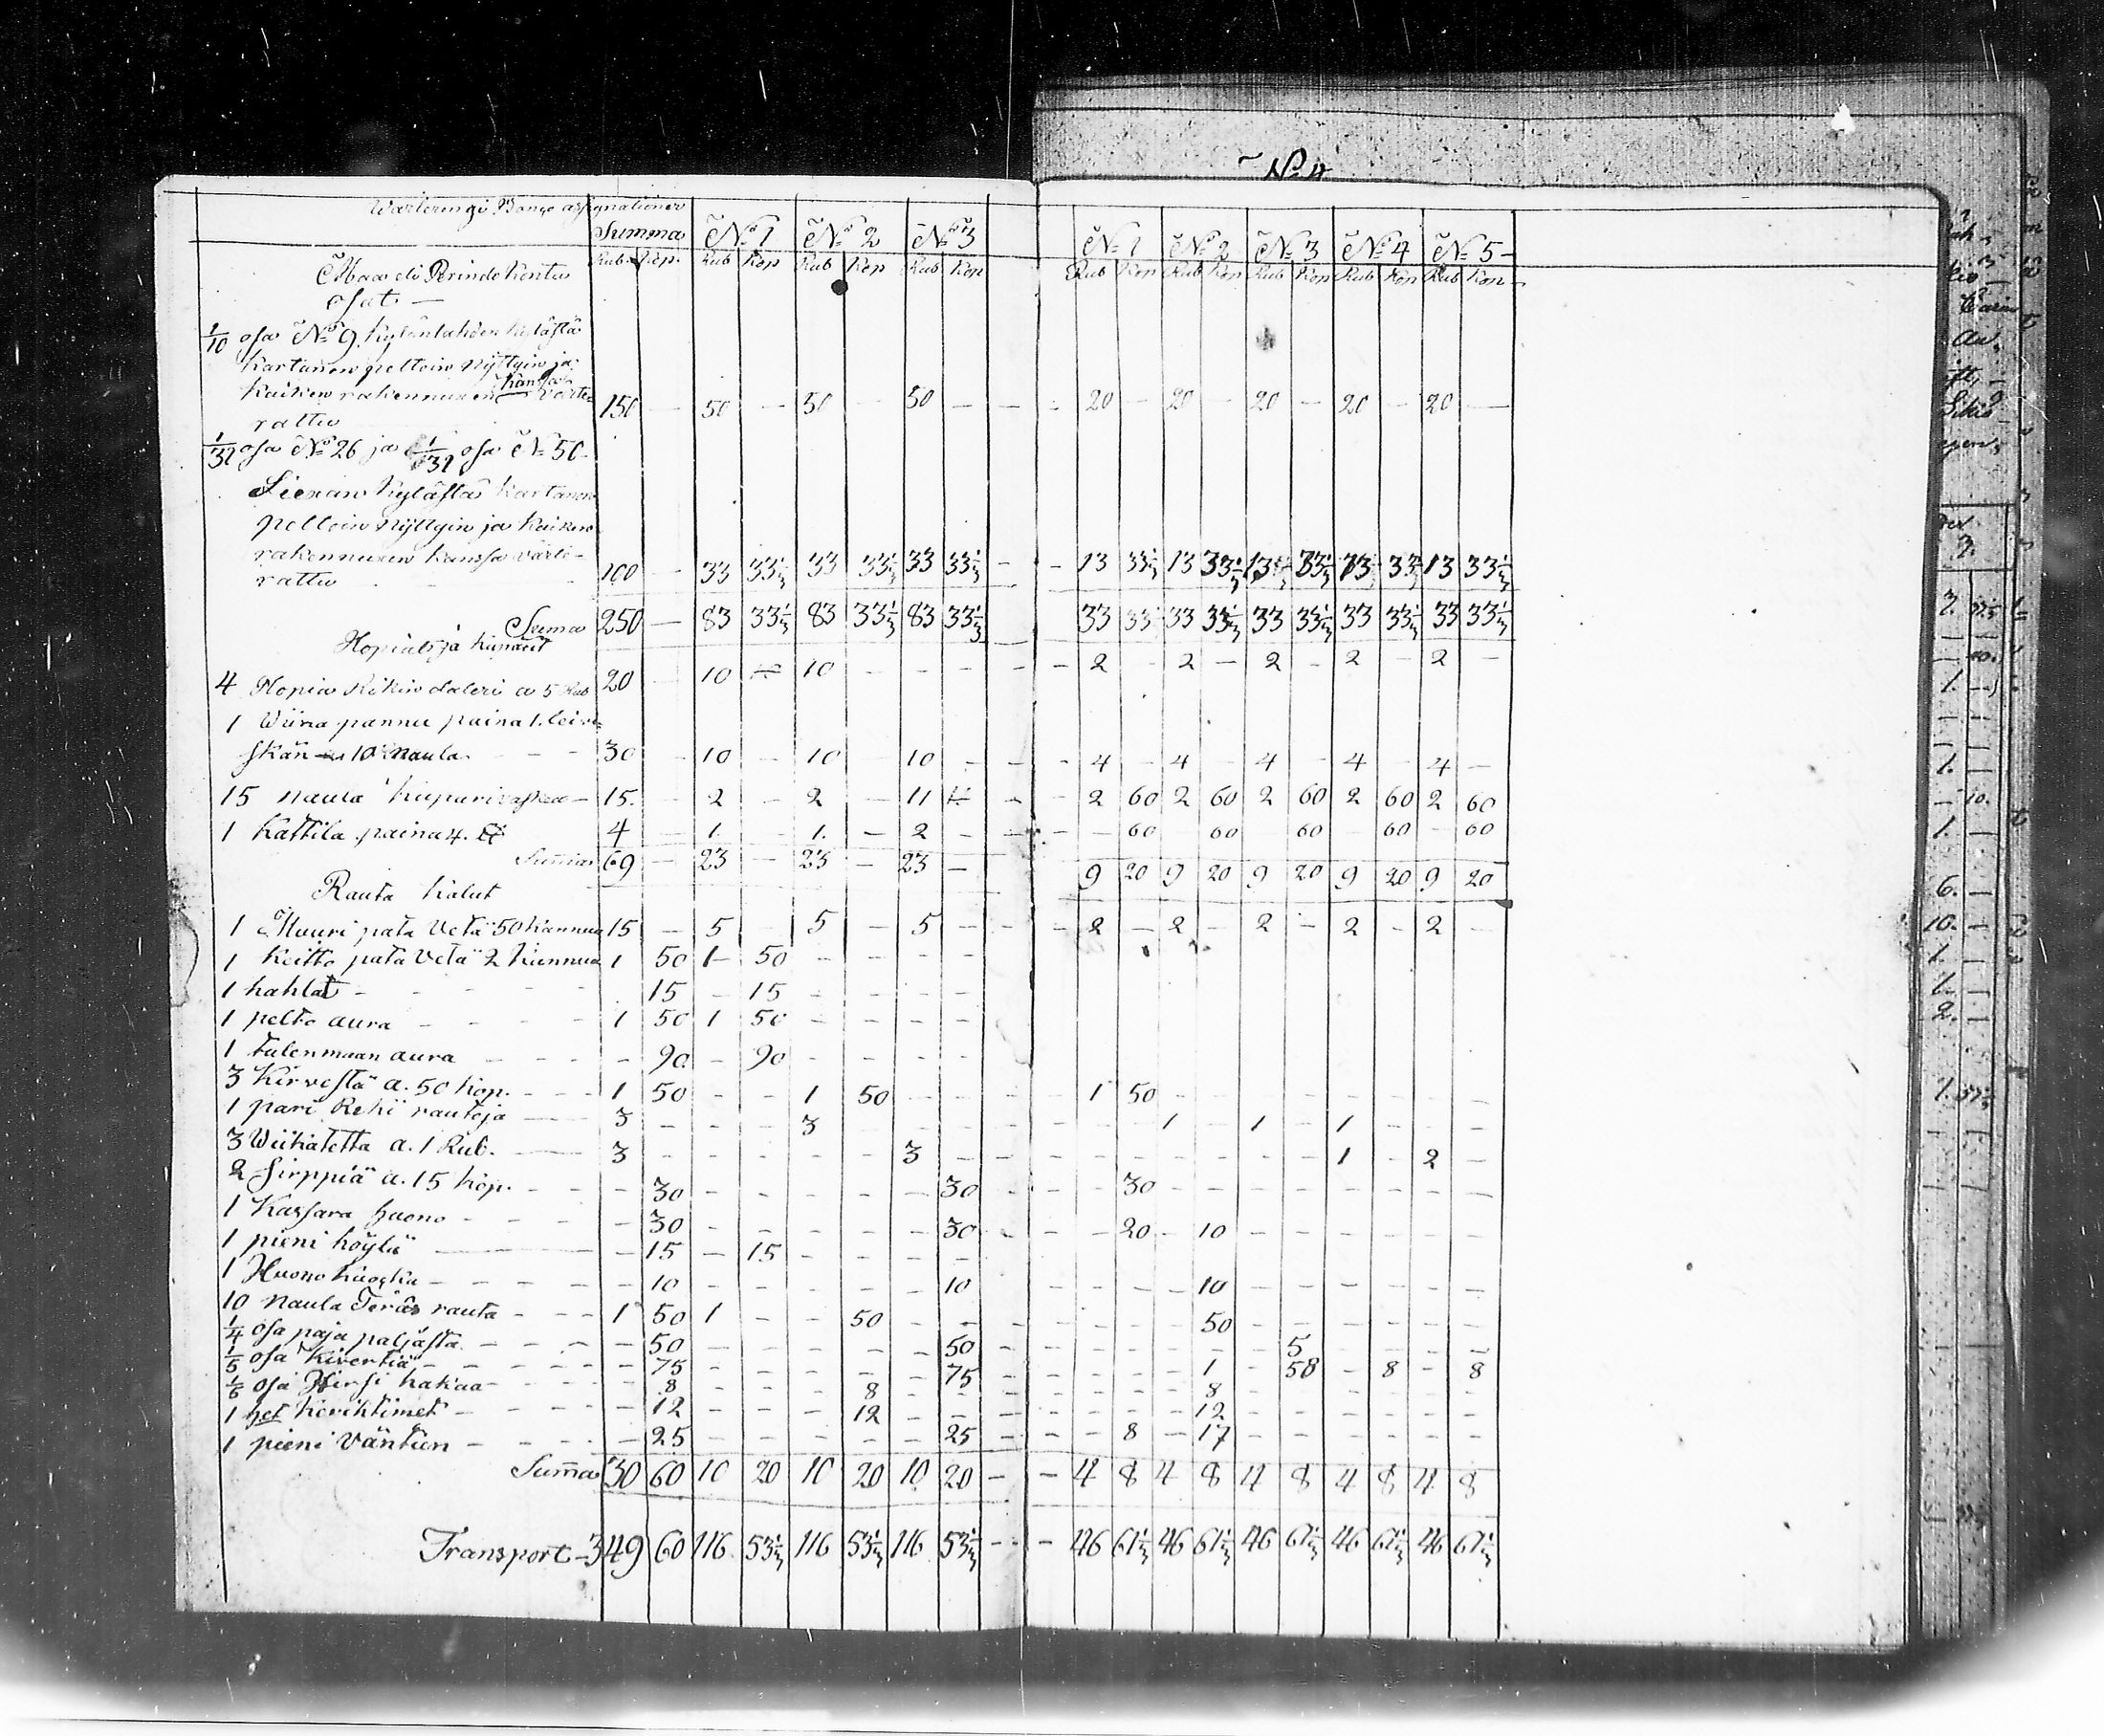 No 4
Wärteringi Banco assignationer
Summa No 1 No 2 No 3 No 1 No 2 No 3 No 4 No 5
Rub Kop. Rub Kop Rub Kop Rub Kop Rub Kop Rub Kop Rub Kop Rub Kop Rub Kop
Maa eli Perinde Kontu
osat
1/10 osa No 9 Kylänlahden kylästä
Kartanon peltoin nijttyin ja
Kaiken rakennuxen kanssa värte=
rattu 150 — 50 — 50 — 50 — — — 20 — 20 — 20 — 20 — 20 —
1/32 osa No 26 ja 1/32 osa No 50
Liexan Kylästä Kartanon
peltoin nijttyin ja Kaiken
rakennuxen kanssa värte-
rattu 100 — 33 33 1/3 33 33 1/3 33 33 1/3 — — 13 33 1/3 13 33 1/3 13 33 1/3 13 33 1/3 13 33 1/3
Summa 250 — 83 33 1/3 83 33 1/3 83 33 1/3 33 33 1/3 33 33 1/3 33 33 1/3 33 33 1/3 33 33 1/3
Hopiat ja
4 Hopia Rikin daleri a 5 Rub 20 — 10 — 10 — — — — — 2 — 2 — 2 — 2 — 2 —
1 Wiina pannu paina 1. leivi=
skän 10 naula 30 — 10 — 10 — 10 — — — 4 — 4 — 4 — 4 — 4 —
15 naula kupari vaskea — 15. — 2 — 2 — 11 — — — 2 60 2 60 2 60 2 60 2 60
1 Kattila paina 4. 4 — 1. — 1. — 2 — — — — 60 60 — 60 — 60 — 60
Summa 69 — 23 — 23 — 23 — 9 20 9 20 9 20 9 20 9 20
Rauta Kalut
1 Muuri pata Vetä 50 kannua 15 — 5 — 5 — 5 — — — 2 — 2 — 2 — 2 — 2 —
1 Keitto pata Vetä 2 Kannua 1 50 1 50 — — — —
1 hahlat — 15 — 15 — — — —
1 pelto aura — 1 50 1 50 — — — —
1 tulenmaan aura — 90 — 90 — — — —
3 Kirvestä a. 50 kop. 1 50 — — 1 50 — — — — 1 50
1 pari Reki rautoja 3 — — — 3 — — — — — 1 1 — 1 — — —
3 Wiikatetta a. 1 Rub. 3 — — — — — 3 — — — — — — — — — 1 — 2 —
2 Sirppiä a. 15 kop. — 30 — — — — — 30 — — — 30 — — — — — — — —
1 Kassara huono — 30 — — — — — 30 — — — 20 — 10 — — — — — —
1 pieni höylä — 15 — 15 — — — —
1 Huono kuokka — 10 — — — — — 10 — — — — — 10 — — — — — —
10 naula Teräs rauta 1 50 1 — — 50 — — — — — — 50 — — — — — —
1/4 osa paja paljasta — 50 — — — — — 50 — — — — — — — 5 — — — —
1/5 osa — 75 — — — — — 75 — — — — — 1 — 58 — 8 — 8
1/6 osa Hirsi hakaa — 8 — — — 8 — — — — — — — 8 — — — — — —
1 het Keriktimet — 12 — — — 12 — — — — — — — 12 — — — — — —
1 pieni Väntien — 25 — — — — — 25 — — — 8 — 17 — — — — — —
Summa 30 60 10 20 10 20 10 20 — — 4 8 4 8 4 8 4 8 4 8
Transport 349 60 116 53 1/3 116 53 1/3 116 53 1/3 — — 46 61 1/3 46 61 1/3 46 61 1/3 46 61 1/3 46 61 1/3